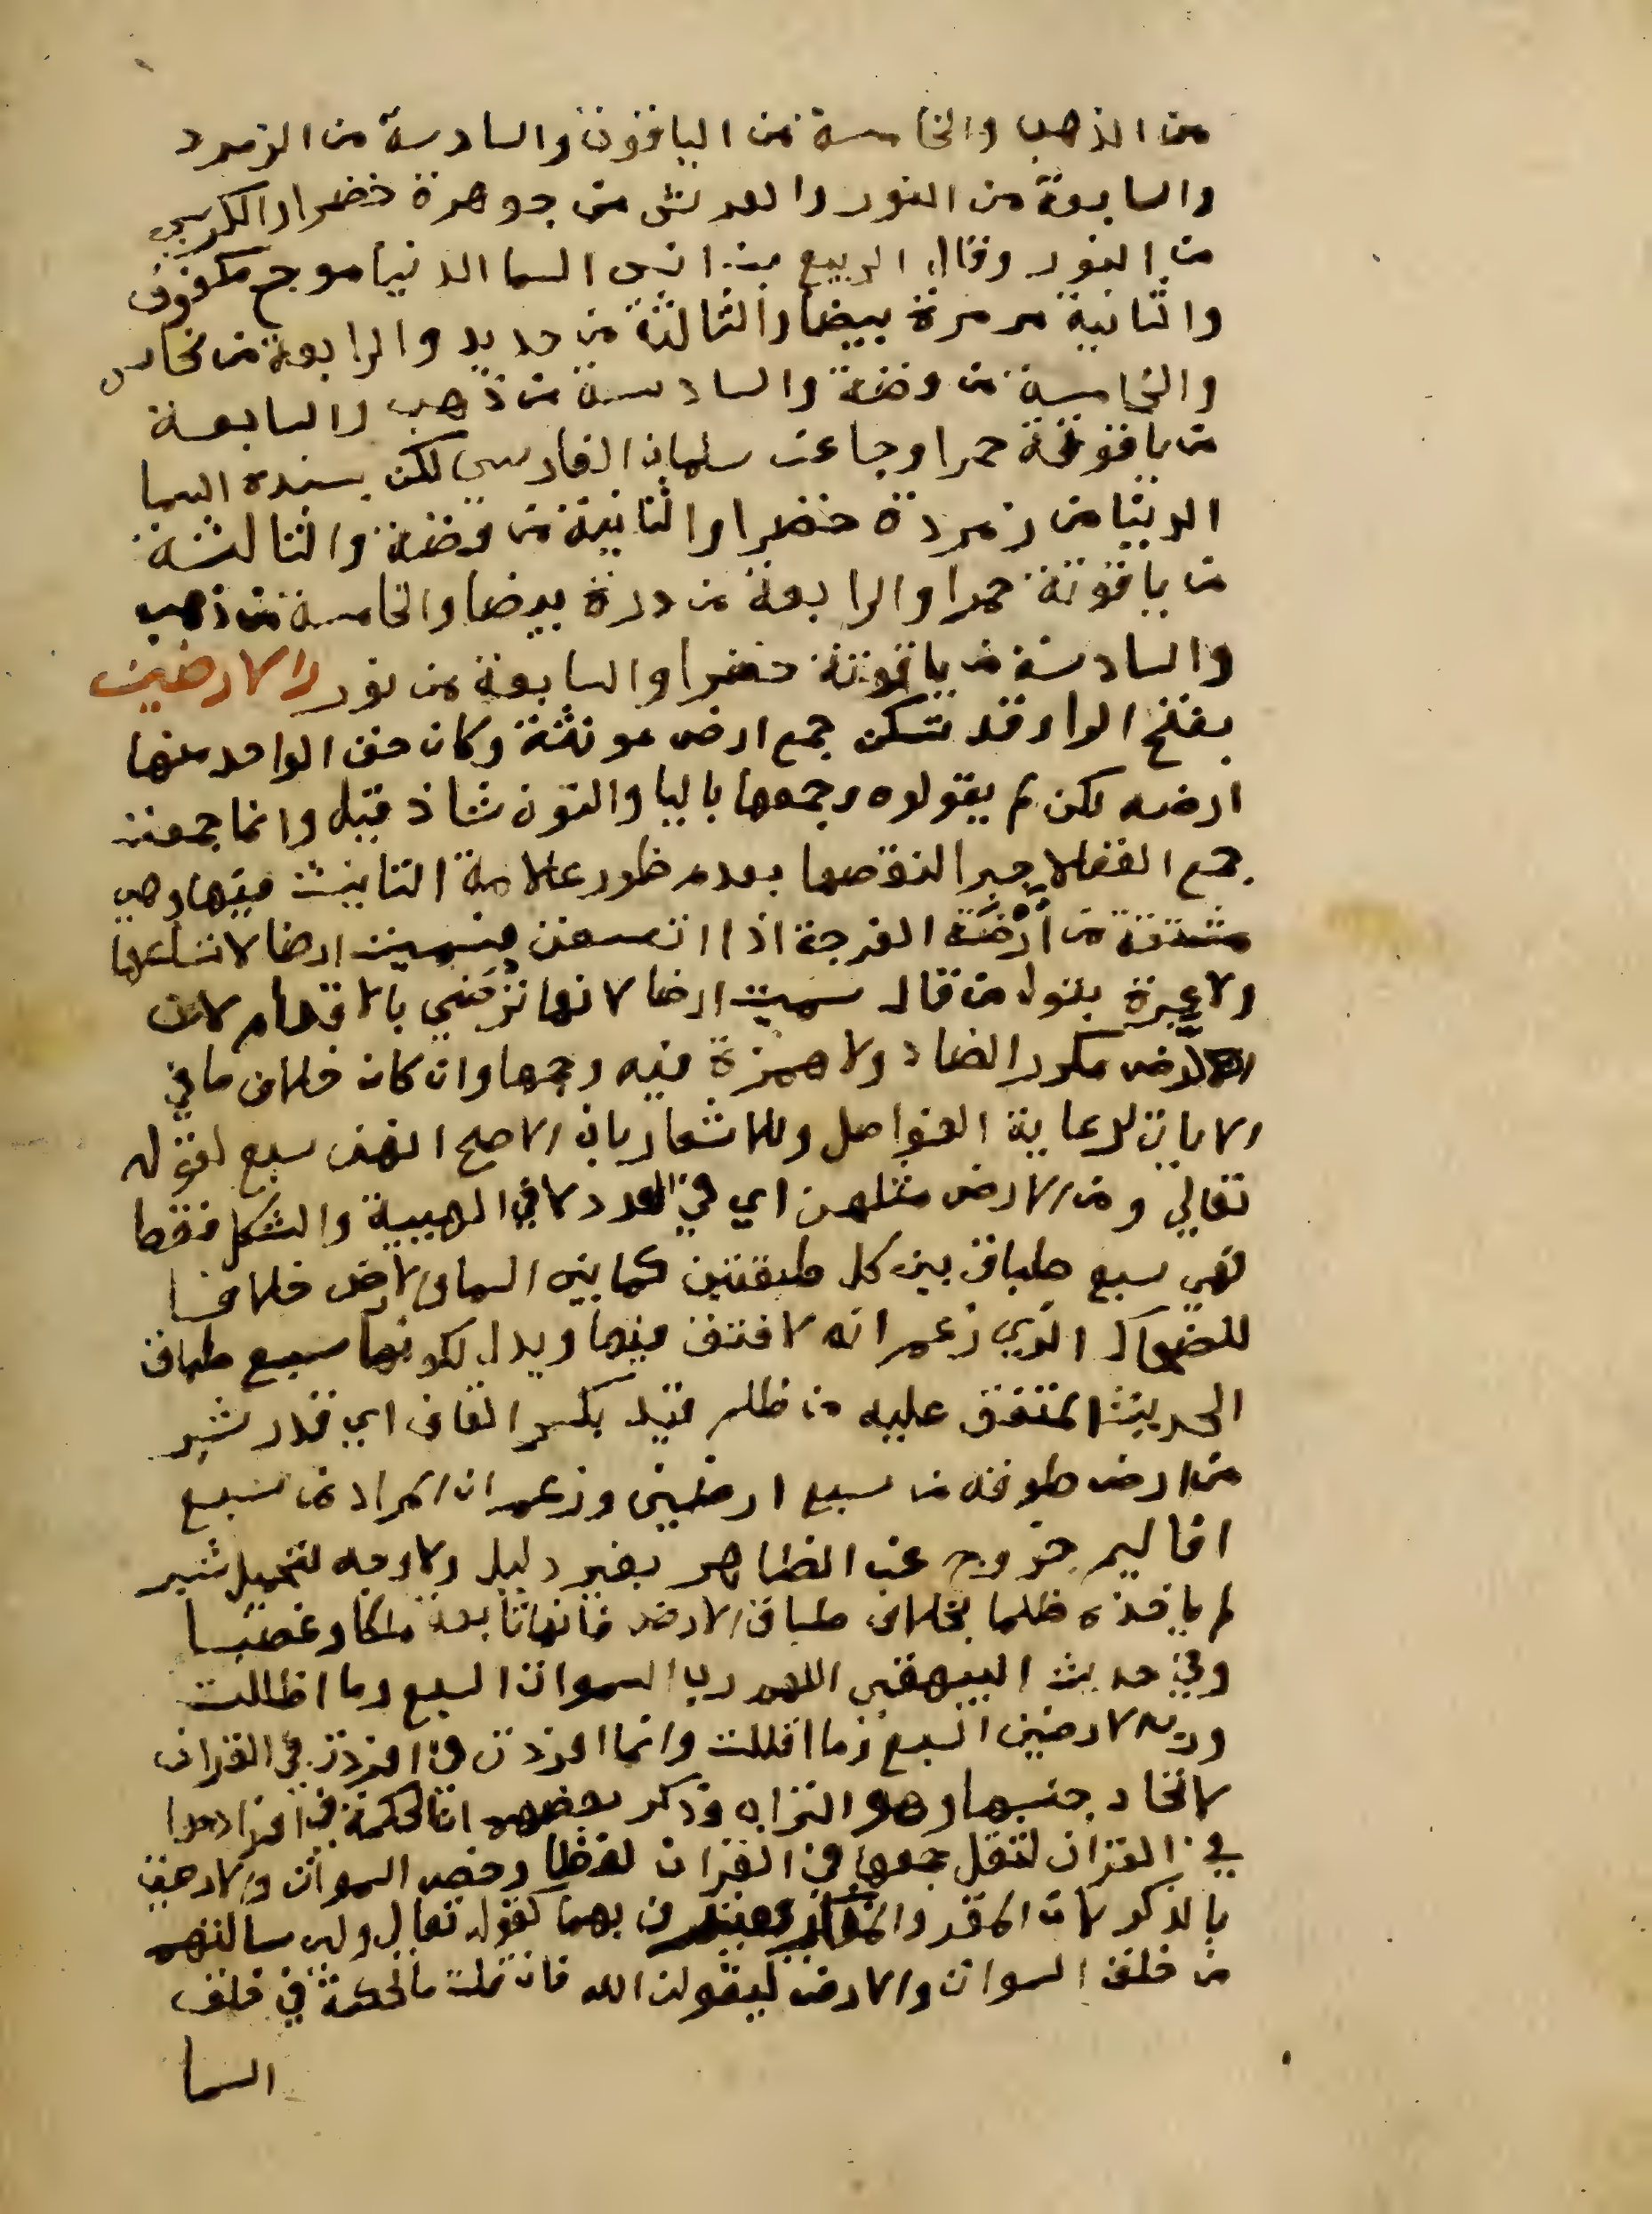 من الذهب والخامسة من الياقوت والسادسة من الزمرد
والسابعة من النور والعرش من جوهرة خضرا والكرسي
من النور وقال الربيع بن انس السما الدنيا موج مكفوف
والثانية مرمرة بيضا والثالثة من حديد والرابعة من نحاس
والخامسة من فضة والسادسة من ذهب والسابعة
من ياقوتة حمرا وجا عن سلمان الفارسي لكن بسنده السما
الدنيا من زمردة خضرا والثانية من فضة والثالثة
من ياقوتة حمرا والرابعة من درة بيضا والخامسة من ذهب
والسادسة من ياقوتة خضرا والسابعة من نور والارضين
بفتح الرا وقد تسكن جمع ارض مونثة وكان حق الواحد منها
ارضه لكن لم يقولوه وجمعها باليا والنون شاذ قيل وانما جمعت
جمع العقلا جبرا لنقصها بعدم ظهور علامة التانيث فيها وهي
مشتقة من أرضَة القرحة اذا اتسعت فسميت ارضا لاتساعها
ولا عبرة بقول من قال سميت ارضا لانها ترض بالاقدام لان
الرض مكرر الضاد ولا همزة فيه وجمعها وان كان خلاف ما في
الايات لرعاية الفواصل وللاشعار بان الاصح انهن سبع لقوله
تعالي ومن الارض مثلهن اي في العدد لا في الهيية والشكل فقط
فهي سبع طباق بين كل طبقتين كما بين السما والارض خلافا
للضحاك الذي زعم انه لا فتق فيها ويدل لكونها سبع طباق
الحديث المتفق عليه من ظلم قيد بكسر القاف اي قدر شبر
من ارض طوقه من سبع ارضين وزعم ان المراد من سبع
اقاليم خروج عن الظاهر بغير دليل ولا وجه لتحميل شبر
لم ياخذه ظلما بخلاف طباق الارض فانها تابعة ملكا وغصبا
وفي حديث البيهقي اللهم رب السموات السبع وما اظللت
ورب الارضين السبع وما اقللت وانما افردت في القران
لاتحاد جنسها وهو التراب وذكر بعضهم ان الحكمة في افرادها
في القران لثقل جمعها في القران لفظا وخص السموات والارضين
بالذكر لان المقر والمنكر معترف بهما كقوله تعالي ولين سالتهم
من خلق السموات والارض ليقولن الله فان قلت ما الحكمة في خلق
السما